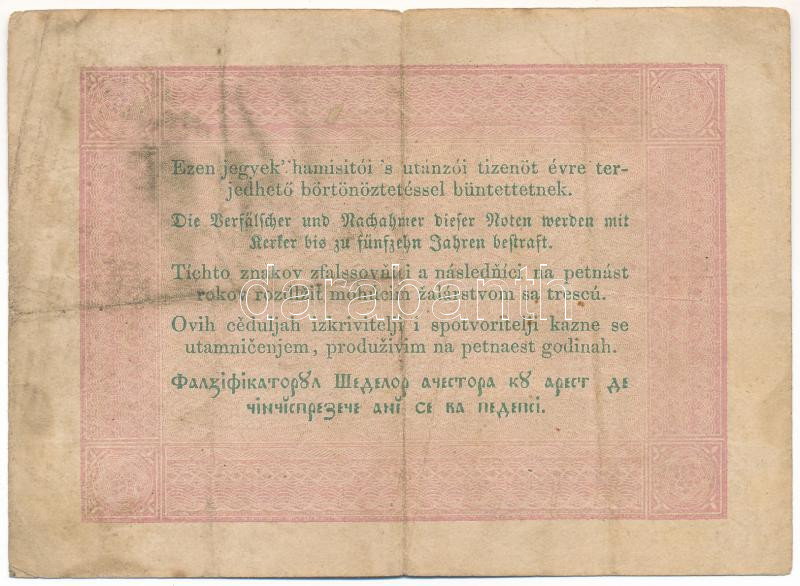 Ezen jegyek' hamisitói 's utánzói tizenöt évre ter-
jedhető börtönöztetéssel büntettetnek.
Die Verfälscher und Nachahmer dieser Noten werden mit
Kerker bis zu fünfzehn Jahren bestraft.
Tíchto znakov zfalssovňíci a následňíci na petnást
rokov rozdlžit mohúcim žalárstvom sa trescú.
darabanth
Ovih cěduljah izkrivitelji i spotvoritelji kazne se
utamničenjem, produživim na petnaest godinah.
Фалзіфікаторȣл Шеделор ачестора кȣ арест де
чінчіспрезече анĭ се ва педепсі.